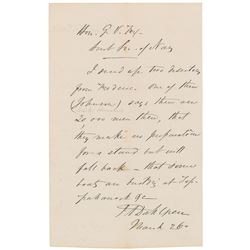 Hon. G. V. Fox
Asst Sec. of Navy
I send up two deserters
from Fredericks. One of them
(Johnson) says there are
20,000 men there, that
they make no preparation
for a stand but will
fall back – that some
boats are building at Tap-
pahannock &c
J A Dahlgren
March 26